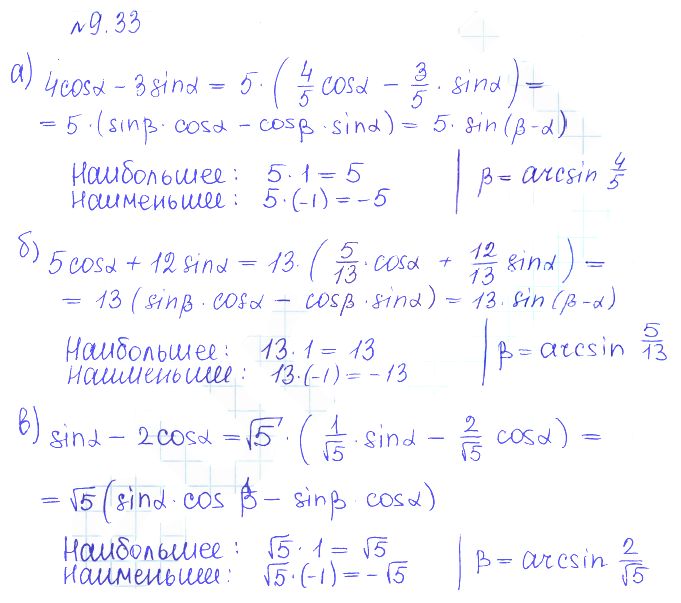 №9.33
а) 4cosα − 3sinα = 5·(4/5 cosα − 3/5 · sinα) =
= 5·(sinβ · cosα − cosβ · sinα) = 5 · sin(β−α)
Наибольшее: 5·1 = 5
Наименьшее: 5·(−1) = −5
β = arcsin 4/5
б) 5cosα + 12sinα = 13·(5/13 · cosα + 12/13 sinα) =
= 13(sinβ · cosα − cosβ · sinα) = 13·sin(β−α)
Наибольшее: 13·1 = 13
Наименьшее: 13·(−1) = −13
β = arcsin 5/13
в) sinα − 2cosα = √5 · (1/√5 · sinα − 2/√5 cosα) =
= √5(sinα · cos β − sinβ · cosα)
Наибольшее: √5 · 1 = √5
Наименьшее: √5·(−1) = −√5
β = arcsin 2/√5